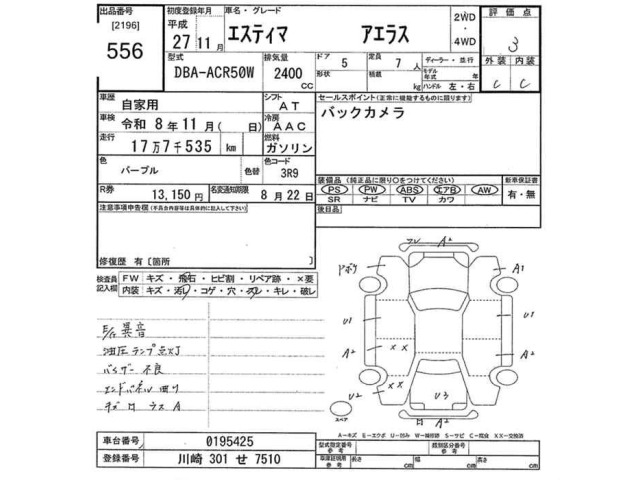 出品番号
[2196]
556
初度登録年月
平成
27 11月
車名・グレード
エスティマ アエラス
2WD
・
4WD
評価点
3
外装 内装
C C
型式
DBA-ACR50W
排気量
2400
CC
ドア
形状
5
定員
積載
7
人
kg
ディーラー・並行
モデル
年式 年
ハンドル 左・右
車歴
自家用
シフト
AT
車検
令和 8年11月( 日)
冷房
AAC
走行
17万7千535 km
燃料
ガソリン
セールスポイント(正常に機能するものに限ります)
バックカメラ
色
パープル
色替
色コード
3R9
R券
13,150円
名変通知期限
8月22日
装備品 (純正品に限り○をつけてください)
PS PW ABS エアB AW
SR ナビ TV カワ
新車保証書
有・無
後日品
注意事項申告欄(不具合内容等は具体的に記入して下さい)
修復歴 有[箇所 ]
検査員
記入欄
FW キズ・飛石・ヒビ割・リペア跡・×要
内装 キズ・汚レ・コゲ・穴・スレ・キレ・破レ
E/G 異音
油圧ランプ点灯
バイザー不良
エンドパネル曲り
A²
A1
U1
U1
A²
A²
××
××
U2
U3
A²
スペア
A-キズ E-エクボ U-凹み W-補修跡 S-サビ C-腐食 XX-交換済
車台番号
0195425
登録番号
川崎 301 せ 7510
型式指定番号
参考
類別区分番号
参考
車庫証明用
参考
長さ cm
幅 cm
高さ cm